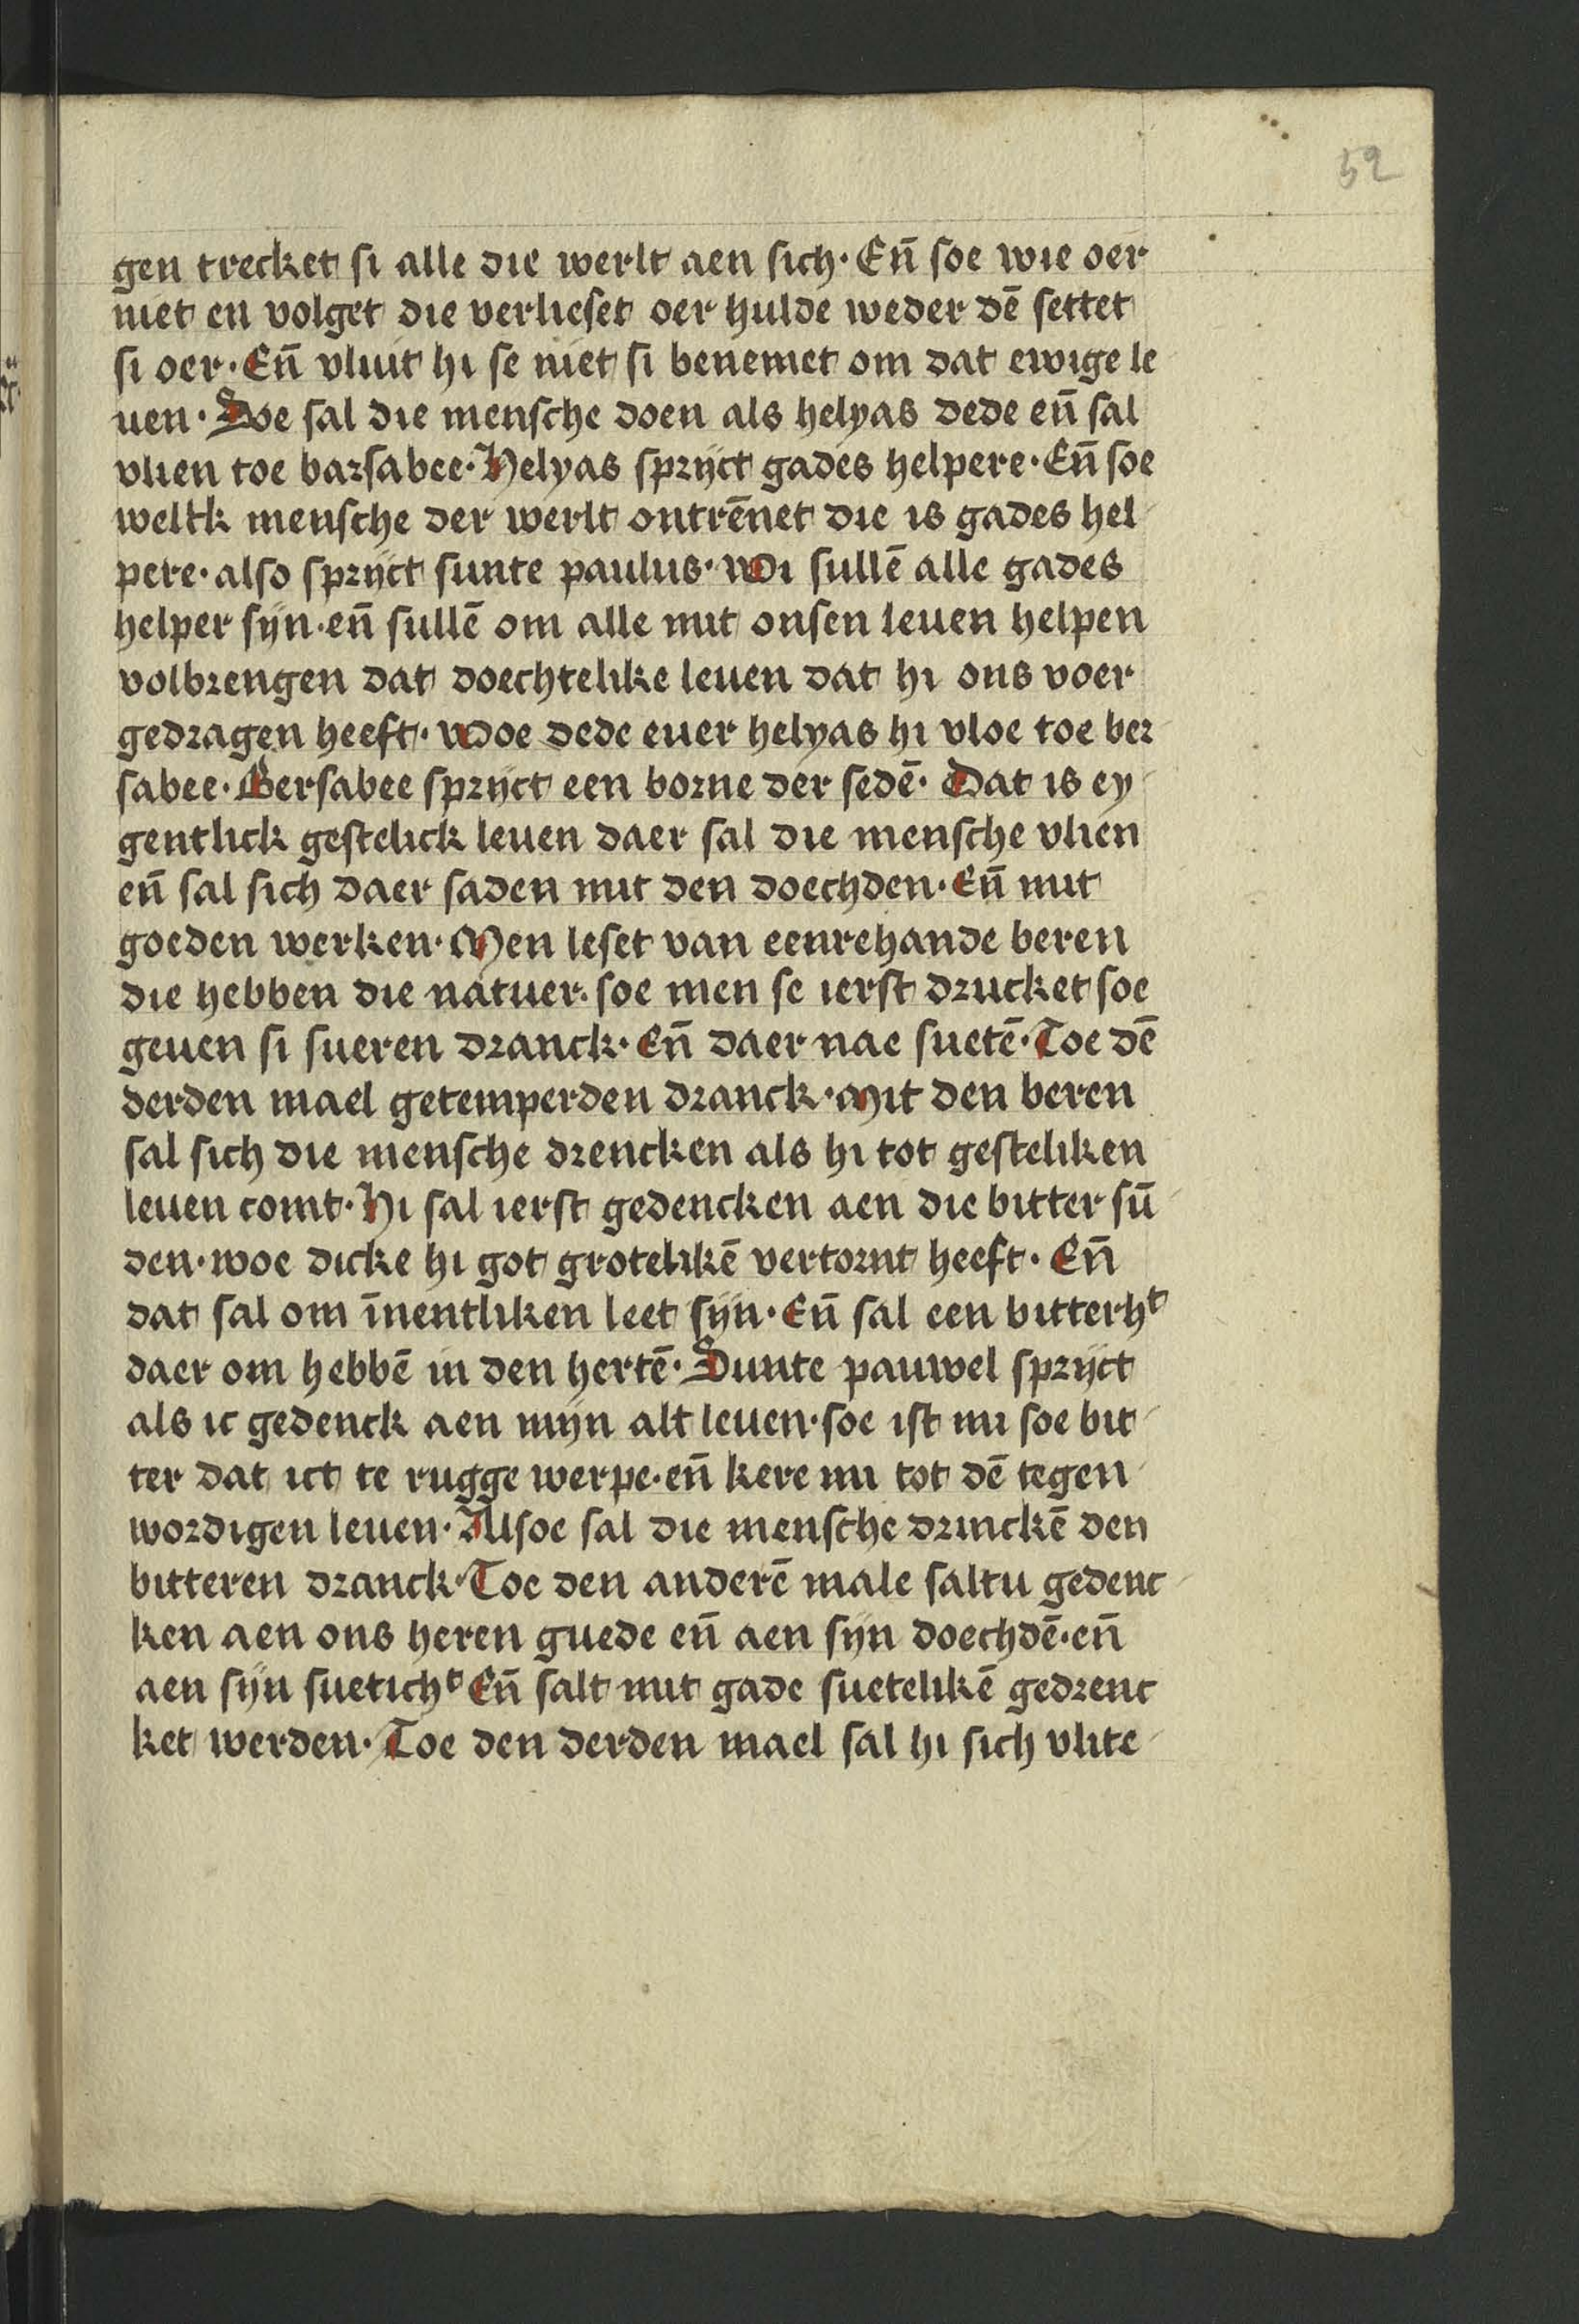 52
gen trecket si alle die werlt aen sich· Eñ soe wie oer
niet en volget die verlieset oer hulde weder dē settet
si oer· Eñ vluit hi se niet si benemet om dat ewige le
uen· Soe sal die mensche doen als helyas dede eñ sal
vlien toe barsabee· Helyas sprijct gades helpere· Eñ soe
weltk mensche der werlt ontrēnet die is gades hel
pere· also sprijct sunte paulus· Wi sullē alle gades
helper sijn· eñ sullē om alle mit onsen leuen helpen
volbrengen dat doechtelike leuen dat hi ons voer
gedragen heeft· Woe dede euer helyas hi vloe toe ber
sabee· Bersabee sprijct een borne der sedē· Dat is ey
gentlick gestelick leuen daer sal die mensche vlien
eñ sal sich daer saden mit den doechden· Eñ mit
goeden werken· Men leset van eenrehande beren
die hebben die natuer· soe men se ierst drucket soe
geuen si sueren dranck· Eñ daer nae suetē· Toe dē
derden mael getemperden dranck· Mit den beren
sal sich die mensche drencken als hi tot gesteliken
leuen comt· Hi sal ierst gedencken aen die bitter sū
den· woe dicke hi got grotelikē vertornt heeft· Eñ
dat sal om īnentliken leet sijn· Eñ sal een bitterhᵗ
daer om hebbē in den hertē· Sunte pauwel sprijct
als ic gedenck aen mijn alt leuen· soe ist mi soe bit
ter dat ict te rugge werpe· eñ kere mi tot dē tegen
wordigen leuen· Alsoe sal die mensche drinckē den
bitteren dranck· Toe den anderē male saltu gedenc
ken aen ons heren guede eñ aen sijn doechdē· eñ
aen sijn suetichᵗ Eñ salt mit gade suetelikē gedrenc
ket werden· Toe den derden mael sal hi sich vlite